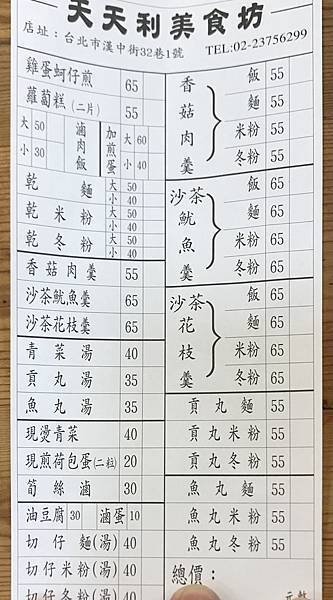 天天利美食坊
店址：台北市漢中街32巷1號 TEL:02-23756299
雞蛋蚵仔煎 65
蘿蔔糕(二片) 55
大 50 滷肉飯 加煎蛋 大 60
小 30 小 40
乾麵 大 50
小 40
乾米粉 大 50
小 40
乾冬粉 大 50
小 40
香菇肉羹 55
沙茶魷魚羹 65
沙茶花枝羹 65
青菜湯 40
貢丸湯 35
魚丸湯 35
現燙青菜 40
現煎荷包蛋(二粒) 20
筍絲滷 30
油豆腐 30 滷蛋 10
切仔麵(湯) 40
切仔米粉(湯) 40
切仔冬粉(湯) 40
香菇肉羹 飯 55
麵 55
米粉 55
冬粉 55
沙茶魷魚羹 飯 65
麵 65
米粉 65
冬粉 65
沙茶花枝羹 飯 65
麵 65
米粉 65
冬粉 65
貢丸麵 55
貢丸米粉 55
貢丸冬粉 55
魚丸麵 55
魚丸米粉 55
魚丸冬粉 55
總價：
元整